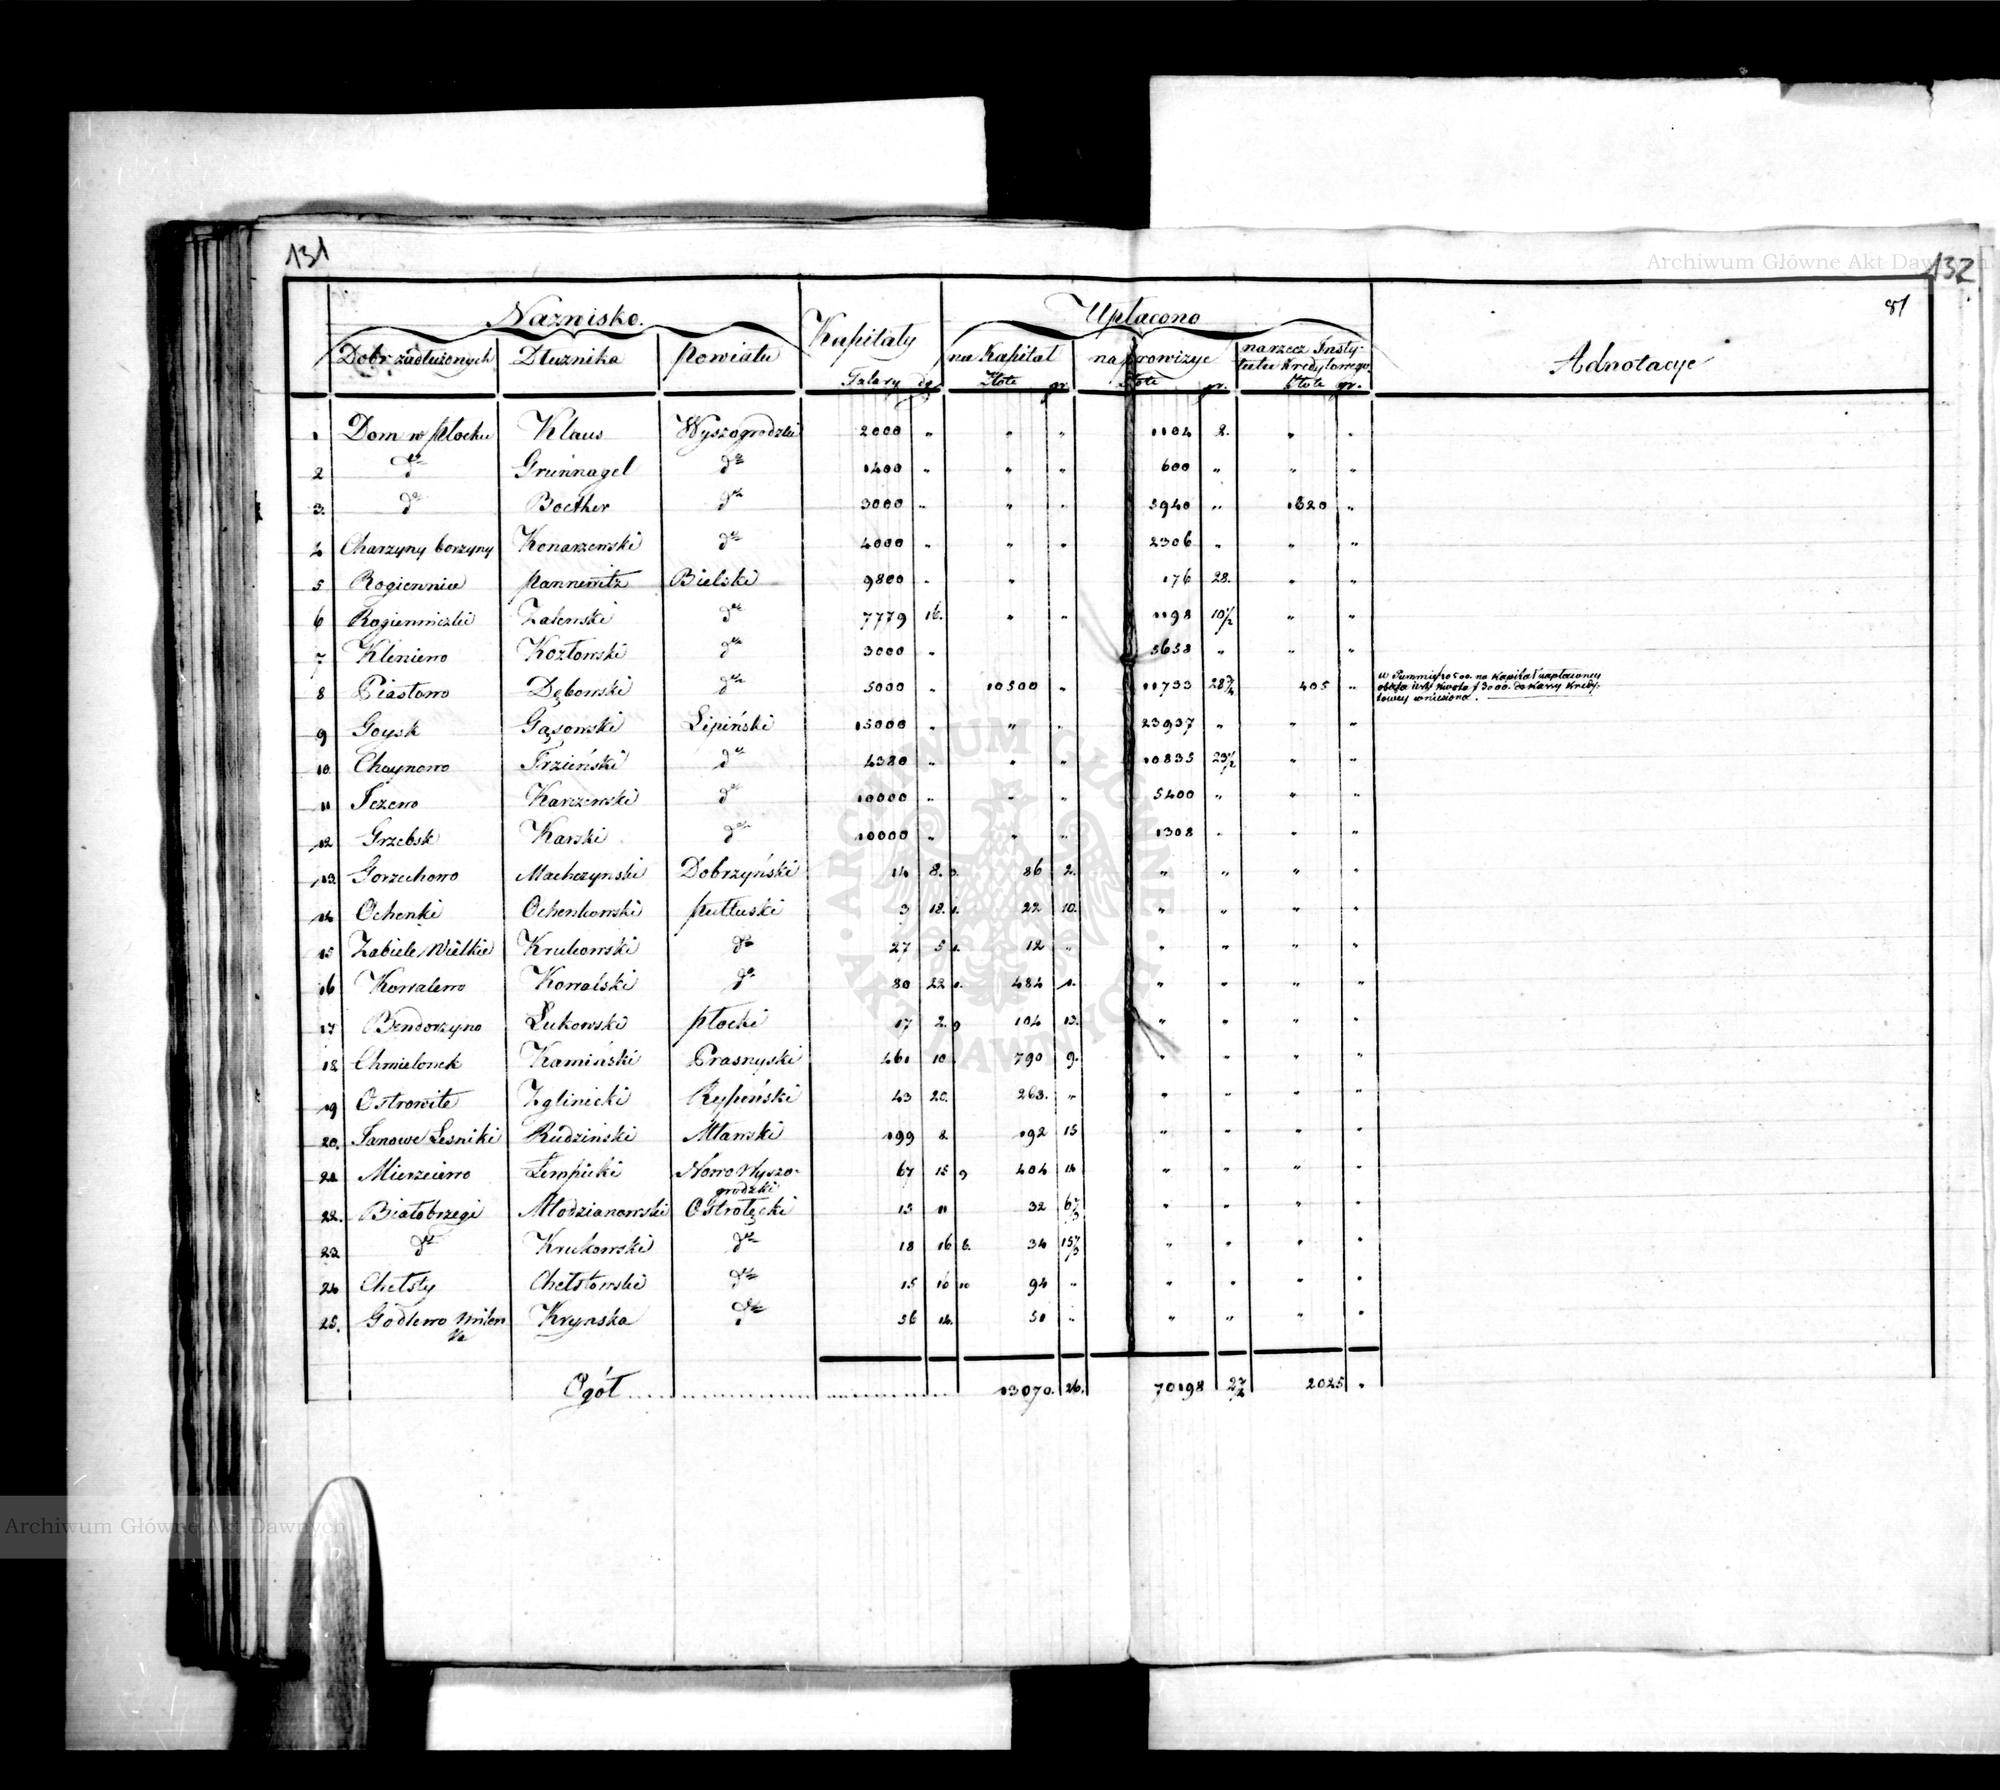 131
132
81
Nazwisko.
Kapitały
Upłacono
Adnotacye
Dobr zadłużonych Dłużnika Powiatu
na Kapitał
na prowizye
na rzecz Insty-
tutu Kredytowego
Talary dg.
Złote gr.
Złote gr.
Złote gr.
1 Dom w Płocku Klaus Wyszogrodzki 2000 " " " 1104 2. " "
2 dto Grunnagel dto 1400 " " " 600 " " "
3. dto Boether dto 3000 " " " 5940 " 1620 "
4 Charzyny borzyny Konarzewski dto 4000 " " " 2306 " " "
5 Rogiennice Pannewitz Bielski 9800 " " 176 28. " "
6 Rogienniczki Zalewski dto 7779 16. " " 1198 10 1/2 " "
7 Kleniewo Kozłowski dto 3000 " 5658 " " "
8 Piastowo Dębowski dto 5000 " 10500 " 11733 28 3/4 405 "
na Kapitał upłaconey
9 Goysk Gąsowski Lipiński 15000 " " " 23937 " " "
10 Chaynowo Trzciński dto 4380 " " " 10835 29 1/2 " "
11 Jeżewo Karczewski dto 10000 " " " 5400 " " "
12 Grzebsk Karski dto 10000 " " " 1308 " " "
13 Gorzechowo Machczynski Dobrzyński 14 8. 3. 86 2. " " " "
14 Ochenki Ochenkowski Pułtuski 3 18. 1. 22 10. " " " "
15 Zabiele Wielkie Krukowski dto 27 5 1. 12 " " " " "
16 Kowalewo Kowalski dto 80 22 1. 484 1. " " " "
17 Bendorzyno Łukowski Płocki 17 2. 9 104 13. " " " "
18 Chmielonek Kamiński Prasnyski 461 10 790 9. " " " "
19 Ostrowite Zglinicki Rypiński 43 20. 263. " " " " "
20. Janowo Leśniki Rudziński Mławski 199 8. 192 15 " " " "
21 Mierzeiewo Lempicki Nowo Wyszo-
grodzki 67 15 9 404 14 " " " "
22. Białobrzegi Młodzianowski Ostrołęcki 13 11 32 6 2/3 " " " "
23. dto Krukowski dto 18 16 6. 34 15 1/3 " " " "
24 Chełsty Chełstowski dto 15 16 10 94 " " " " "
25. Godlewo Krynska dto 56 14. 51 " " " " "
Ogół 13070. 26. 70198 27/4 2025 "
Archiwum Główne Akt Dawnych
ARCHIWUM GŁÓWNE AKT DAWNYCH
Archiwum Główne Akt Dawnych